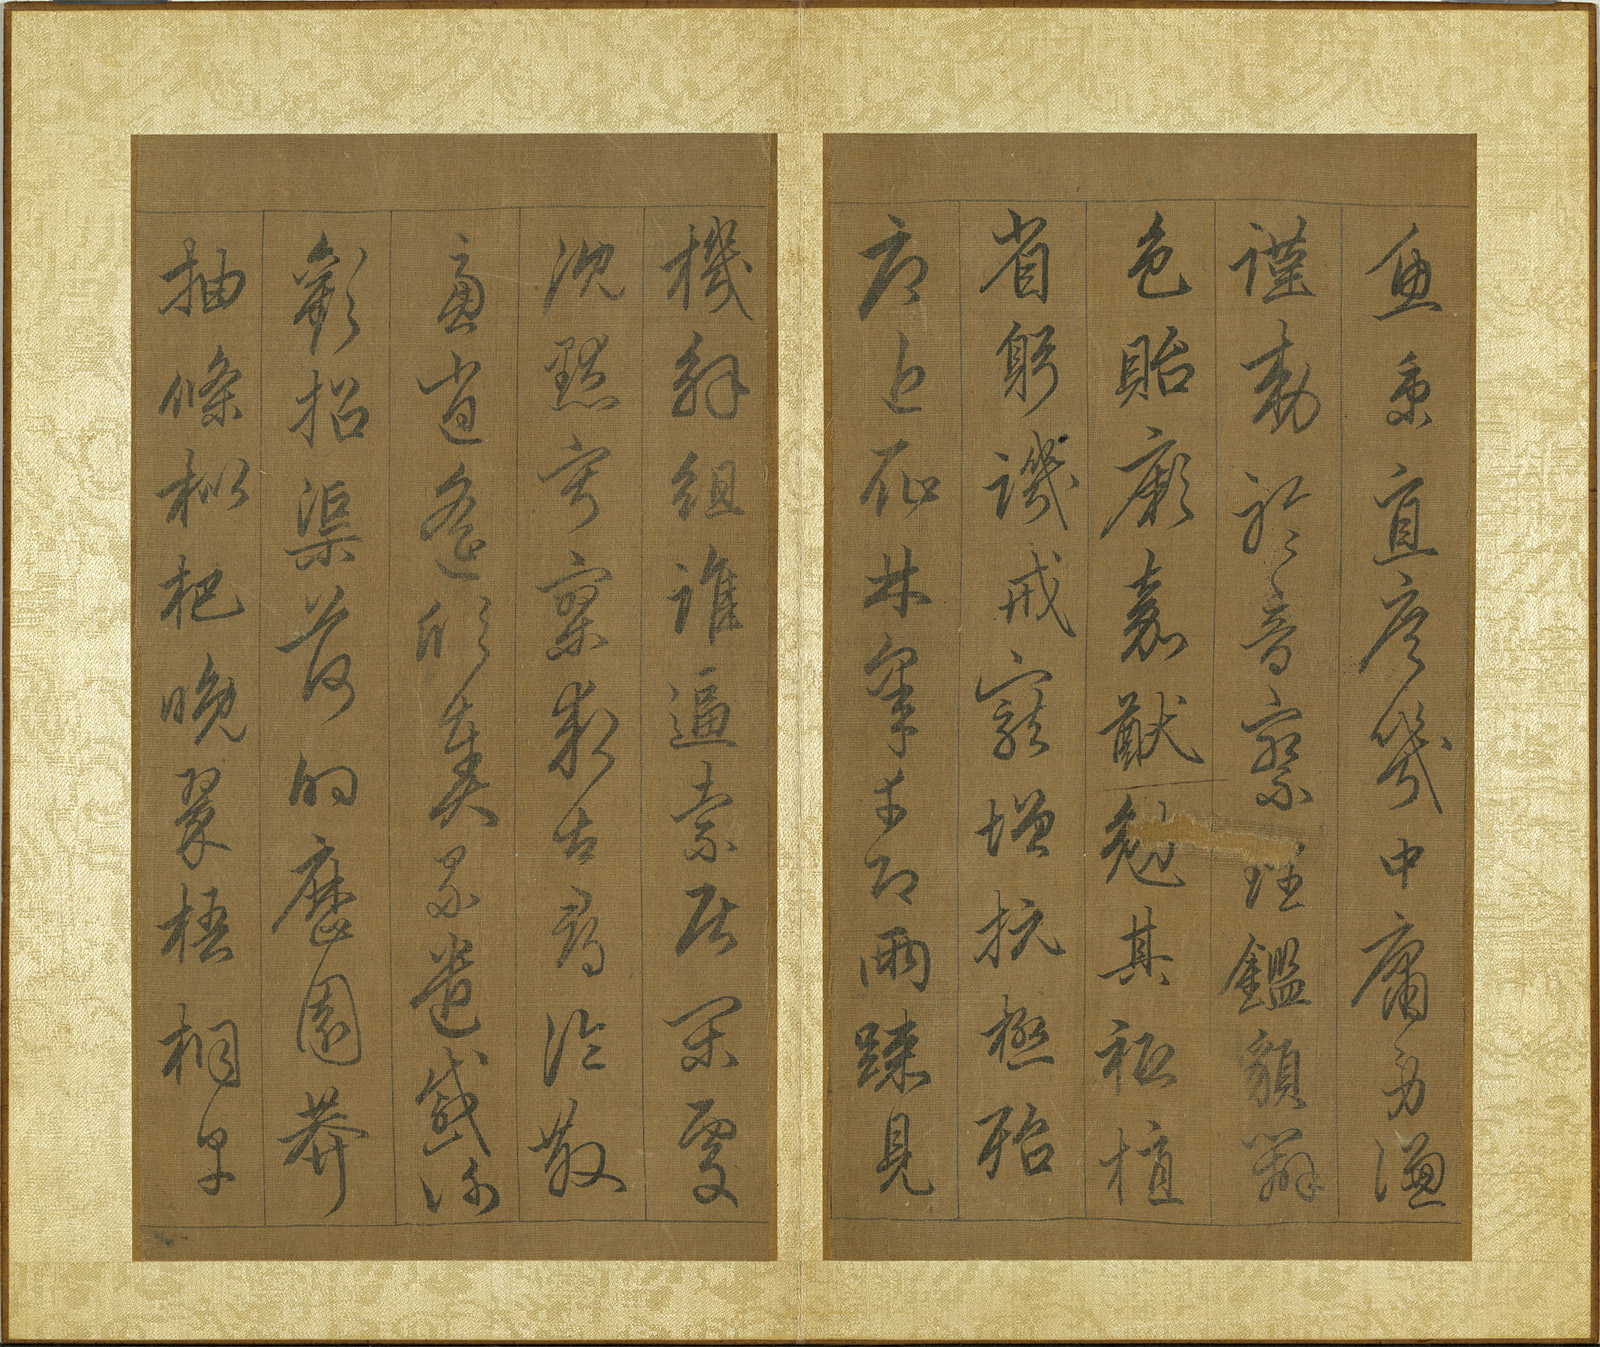 魚秉直庶幾中庸勞謙
謹勑聆音察理鑑貌辨
色貽厥嘉猷勉其祗植
省躬譏戒寵增抗極殆
辱近恥林皋幸即兩踈見
機解組誰逼索居閑處
沈默寂寥求古尋論散
慮逍遙欣奏累遣慼謝
歡招渠荷的歷園莽
抽條枇杷晚翠梧桐早